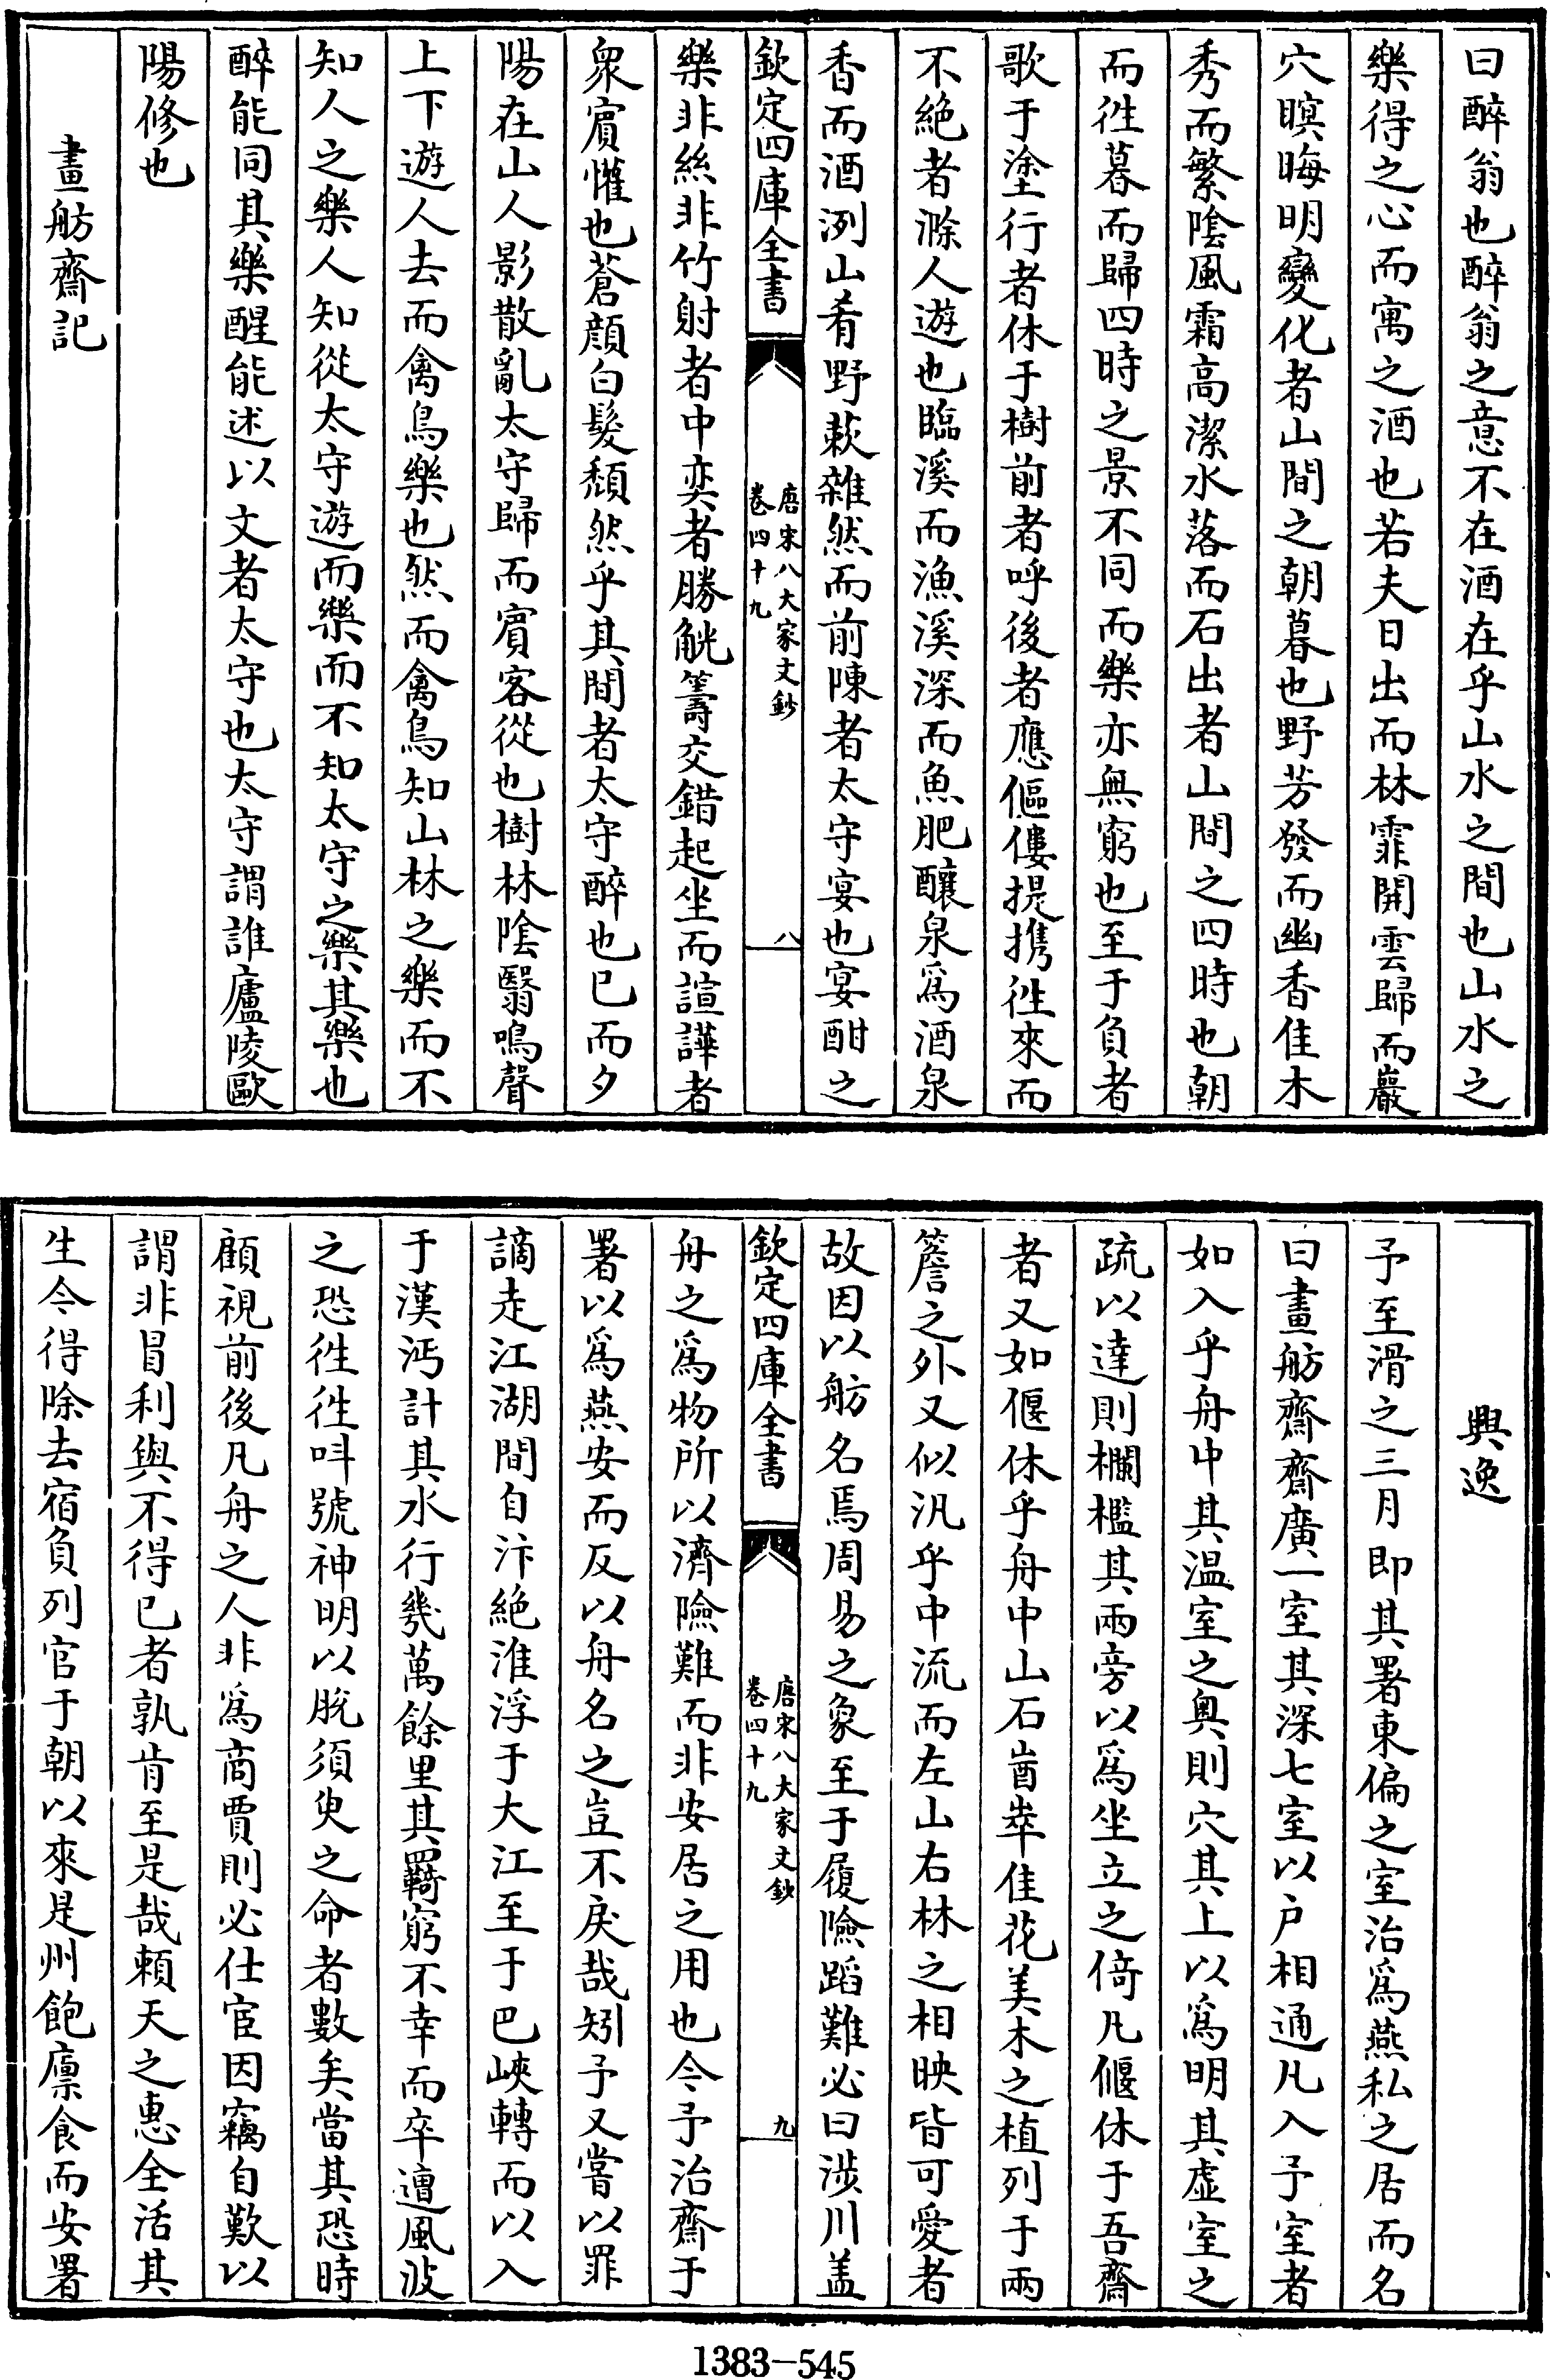 曰醉翁也醉翁之意不在酒在乎山水之間也山水之
樂得之心而寓之酒也若夫日出而林霏開雲歸而巖
穴暝晦明變化者山間之朝暮也野芳發而幽香佳木
秀而繁陰風霜高潔水落而石出者山間之四時也朝
而徃暮而歸四時之景不同而樂亦無窮也至于負者
歌于塗行者休于樹前者呼後者應傴僂提携徃來而
不絶者滁人遊也臨溪而漁溪深而魚肥釀泉爲酒泉
香而酒洌山肴野蔌雜然而前陳者太守宴也宴酣之
欽定四庫全書
唐宋八大家文鈔
卷四十九
八
樂非絲非竹射者中奕者勝觥籌交錯起坐而諠譁者
衆賓懽也蒼顔白髮頽然乎其間者太守醉也已而夕
陽在山人影散亂太守歸而賓客從也樹林陰翳鳴聲
上下遊人去而禽鳥樂也然而禽鳥知山林之樂而不
知人之樂人知從太守遊而樂而不知太守之樂其樂也
醉能同其樂醒能述以文者太守也太守謂誰廬陵歐
陽修也
畫舫齋記
興逸
予至滑之三月即其署東偏之室治爲燕私之居而名
曰畫舫齋齋廣一室其深七室以户相通凡入予室者
如入乎舟中其温室之奥則穴其上以爲明其虛室之
疏以達則欄檻其兩旁以爲坐立之倚凡偃休于吾齋
者又如偃休乎舟中山石崷崒佳花美木之植列于兩
簷之外又似汎乎中流而左山右林之相映皆可愛者
故因以舫名焉周易之象至于履險蹈難必曰涉川盖
欽定四庫全書
唐宋八大家文鈔
卷四十九
九
舟之爲物所以濟險難而非安居之用也今予治齋于
署以爲燕安而反以舟名之豈不戾哉矧予又嘗以罪
謫走江湖間自汴絶淮浮于大江至于巴峽轉而以入
于漢沔計其水行幾萬餘里其羈窮不幸而卒遭風波
之恐徃徃呌號神明以脱須臾之命者數矣當其恐時
顧視前後凡舟之人非爲商賈則必仕宦因竊自歎以
謂非冒利與不得已者孰肯至是哉賴天之惠全活其
生今得除去宿負列官于朝以來是州飽廪食而安署
1383-545